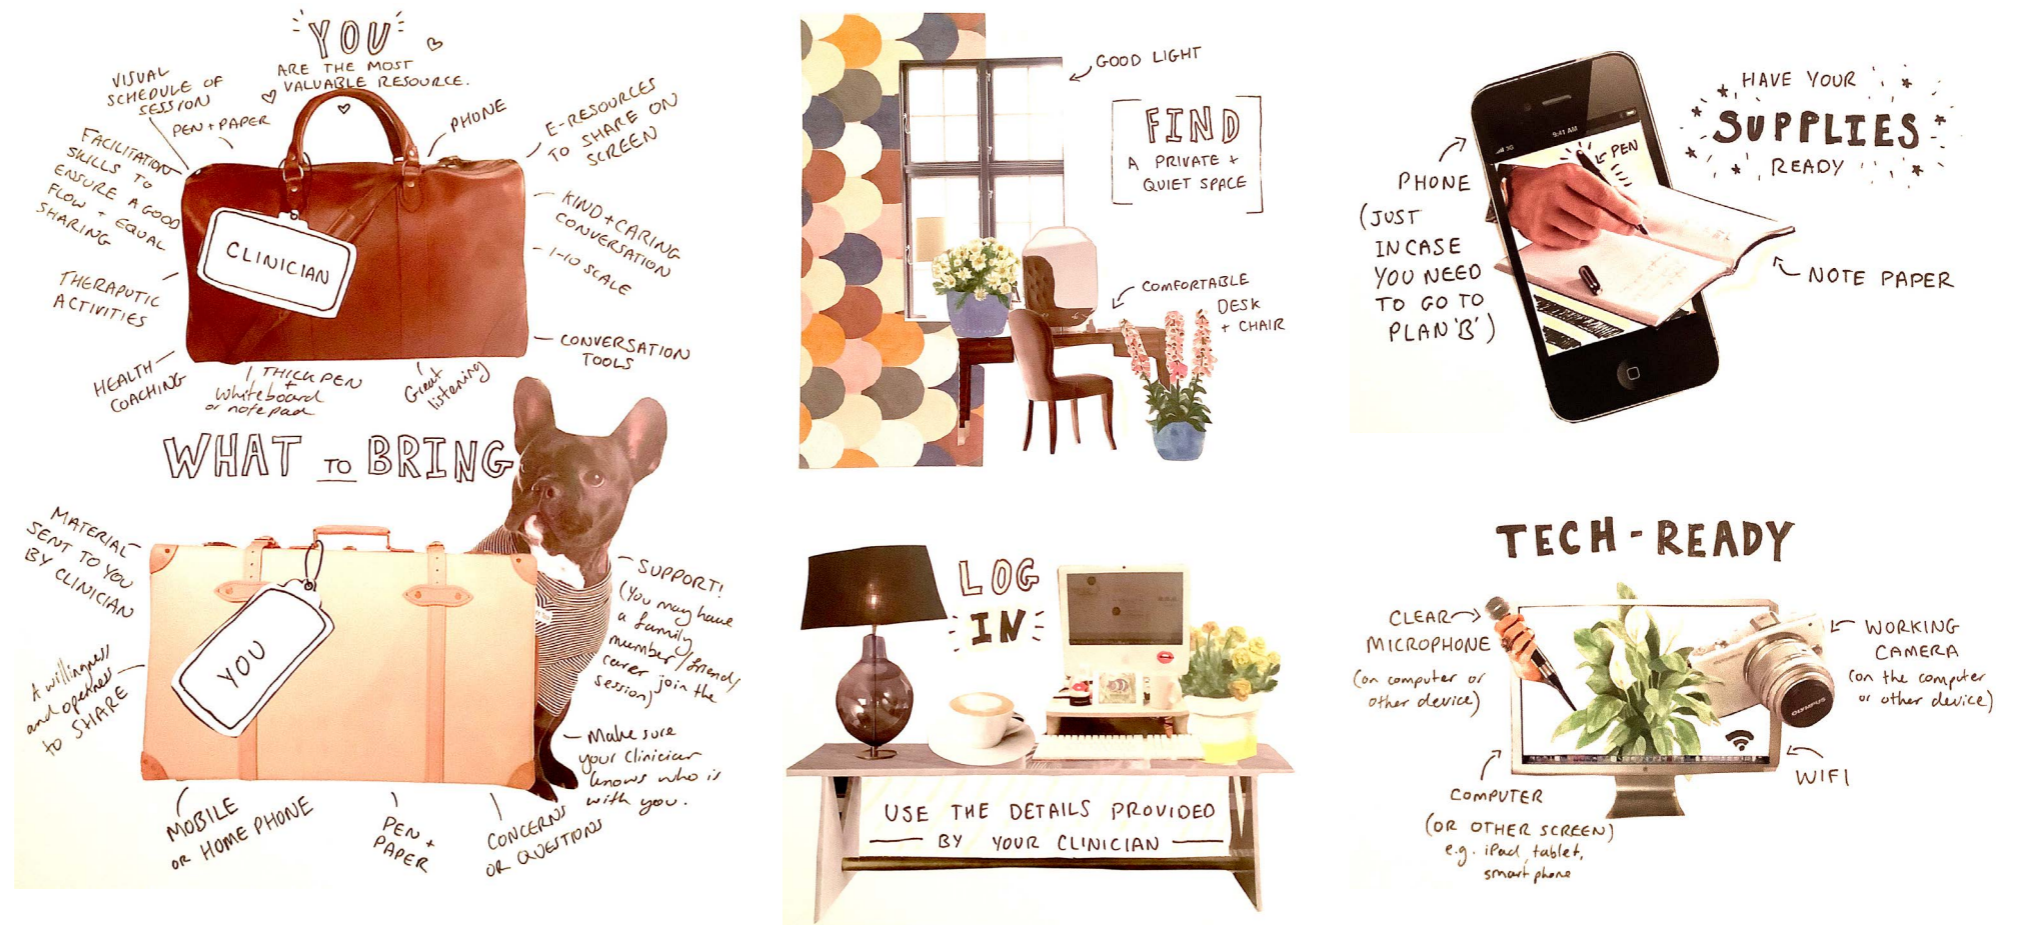 YOU
ARE THE MOST
VALUABLE RESOURCE.
VISUAL
SCHEDULE OF
SESSION
PEN + PAPER
FACILITATION
SKILLS TO
ENSURE A GOOD
FLOW + EQUAL
SHARING
THERAPUTIC
ACTIVITIES
HEALTH
COACHING
1 THICK PEN
+
Whiteboard
or notepad
Great
listening
PHONE
E-RESOURCES
TO SHARE ON
SCREEN
KIND + CARING
CONVERSATION
1-10 SCALE
CONVERSATION
TOOLS
CLINICIAN
WHAT TO BRING
MATERIAL
SENT TO YOU
BY CLINICIAN
A willingness
and openness
to SHARE
MOBILE
OR HOME PHONE
PEN +
PAPER
CONCERNS
OR QUESTIONS
SUPPORT!
(You may have
a family
member/friend/
carer join the
session)
Make sure
your Clinician
knows who is
with you.
YOU
GOOD LIGHT
FIND
A PRIVATE +
QUIET SPACE
COMFORTABLE
DESK
+ CHAIR
LOG
IN
USE THE DETAILS PROVIDED
BY YOUR CLINICIAN
HAVE YOUR
SUPPLIES
READY
9:41 AM
3G
PEN
PHONE
(JUST
IN CASE
YOU NEED
TO GO TO
PLAN 'B')
NOTE PAPER
TECH-READY
CLEAR
MICROPHONE
(on computer or
other device)
WORKING
CAMERA
(on the computer
or other device)
OLYMPUS
WIFI
COMPUTER
(OR OTHER SCREEN)
e.g. iPad, tablet,
smart phone